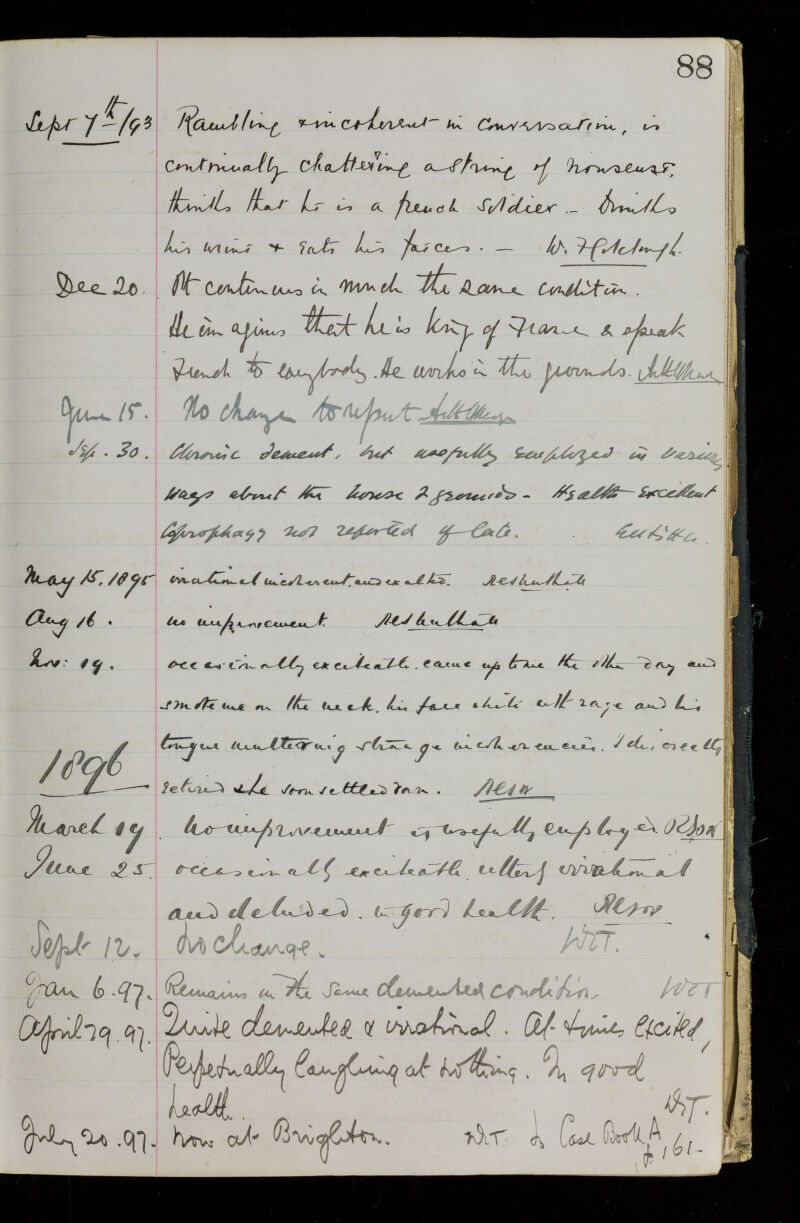 88
Sept 7th/93 Rambling & incoherent in conversation, is
continually chattering a string of nonsense,
thinks that he is a french soldier – Drinks
his urine & eats his faeces. – W.
Dec 20. Pt continues in much the same condition.
He imagines that he is King of France & speaks
French to everybody. He works in the grounds.
June 15. No change to report
Sep. 30. Chronic dement, but usefully employed in various
ways about the house & grounds – Health excellent
Coprophagy not reported of late.
May 15. 1895 irrational incoherent and exalted.
Aug 16. no improvement.
Nov: 19. occasionally exciteable. came up to me the other day and
smote me on the neck, his face white with rage and his
tongue muttering strange incoherencies. I discreetly
1896
retired & he soon settled down.
March 19. No improvement is usefully employed
June 25. occasionally exciteable, utterly irrational
and deluded. in good health.
Sept 12. No change. WT.
Jan 6. 97. Remains in the same demented condition. WT
April 29. 97. Quite demented & irrational. At times excited,
Perpetually laughing at nothing. In good
health. WT.
July 20. 97. Now at Brighton. WT. to Case Book A
p 161.